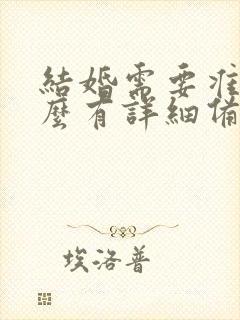 結婚需要准
麼有詳細備
埃洛普